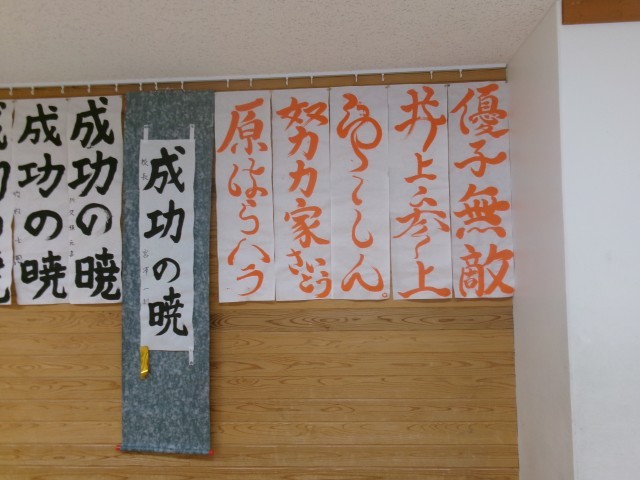 優子無敵
井上参上
ゆ〜しん。
努力家さいとう
原はらハラ
成功の暁
校長
成功の暁
成功の暁